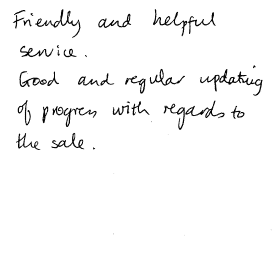 Friendly and helpful
service.
Good and regular updating
of progress with regards to
the sale.